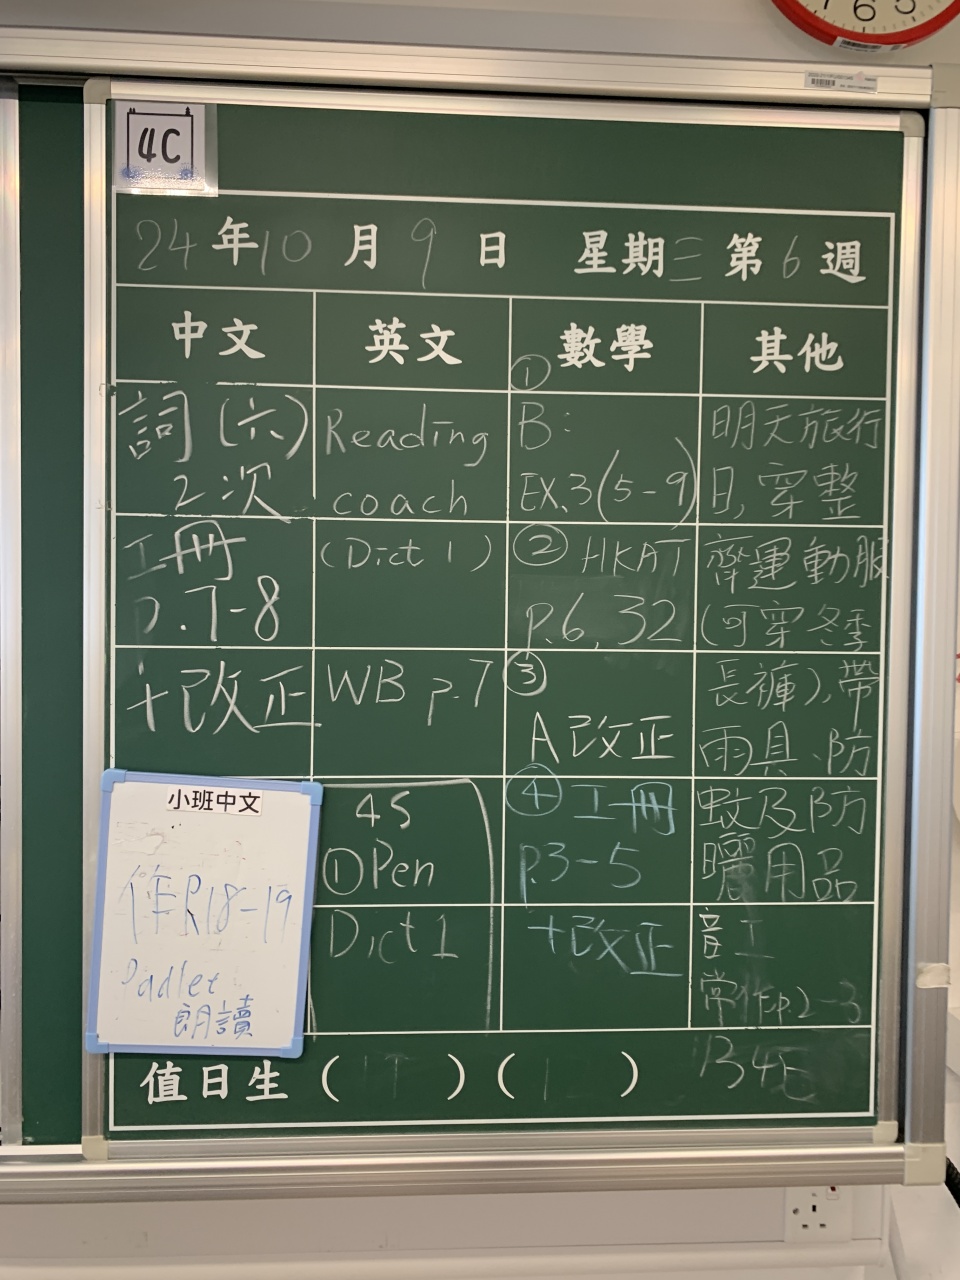 4C
24年10月9日 星期三第6週
中文 英文 數學 其他
詞(六)
2次
工冊
p.7-8
+改正
小班中文
作P.18-19
Padlet
朗讀
Reading
coach
(Dict 1)
WB p.7
4S
①Pen
Dict 1
①
B:
EX.3(5-9)
② HKAT
p.6, 32
③
A改正
④工冊
p.3-5
+改正
明天旅行
日,穿整
齊運動服
(可穿冬季
長褲),帶
雨具、防
蚊及防
曬用品
音工
常作p.2-3
值日生( )( )
6
5